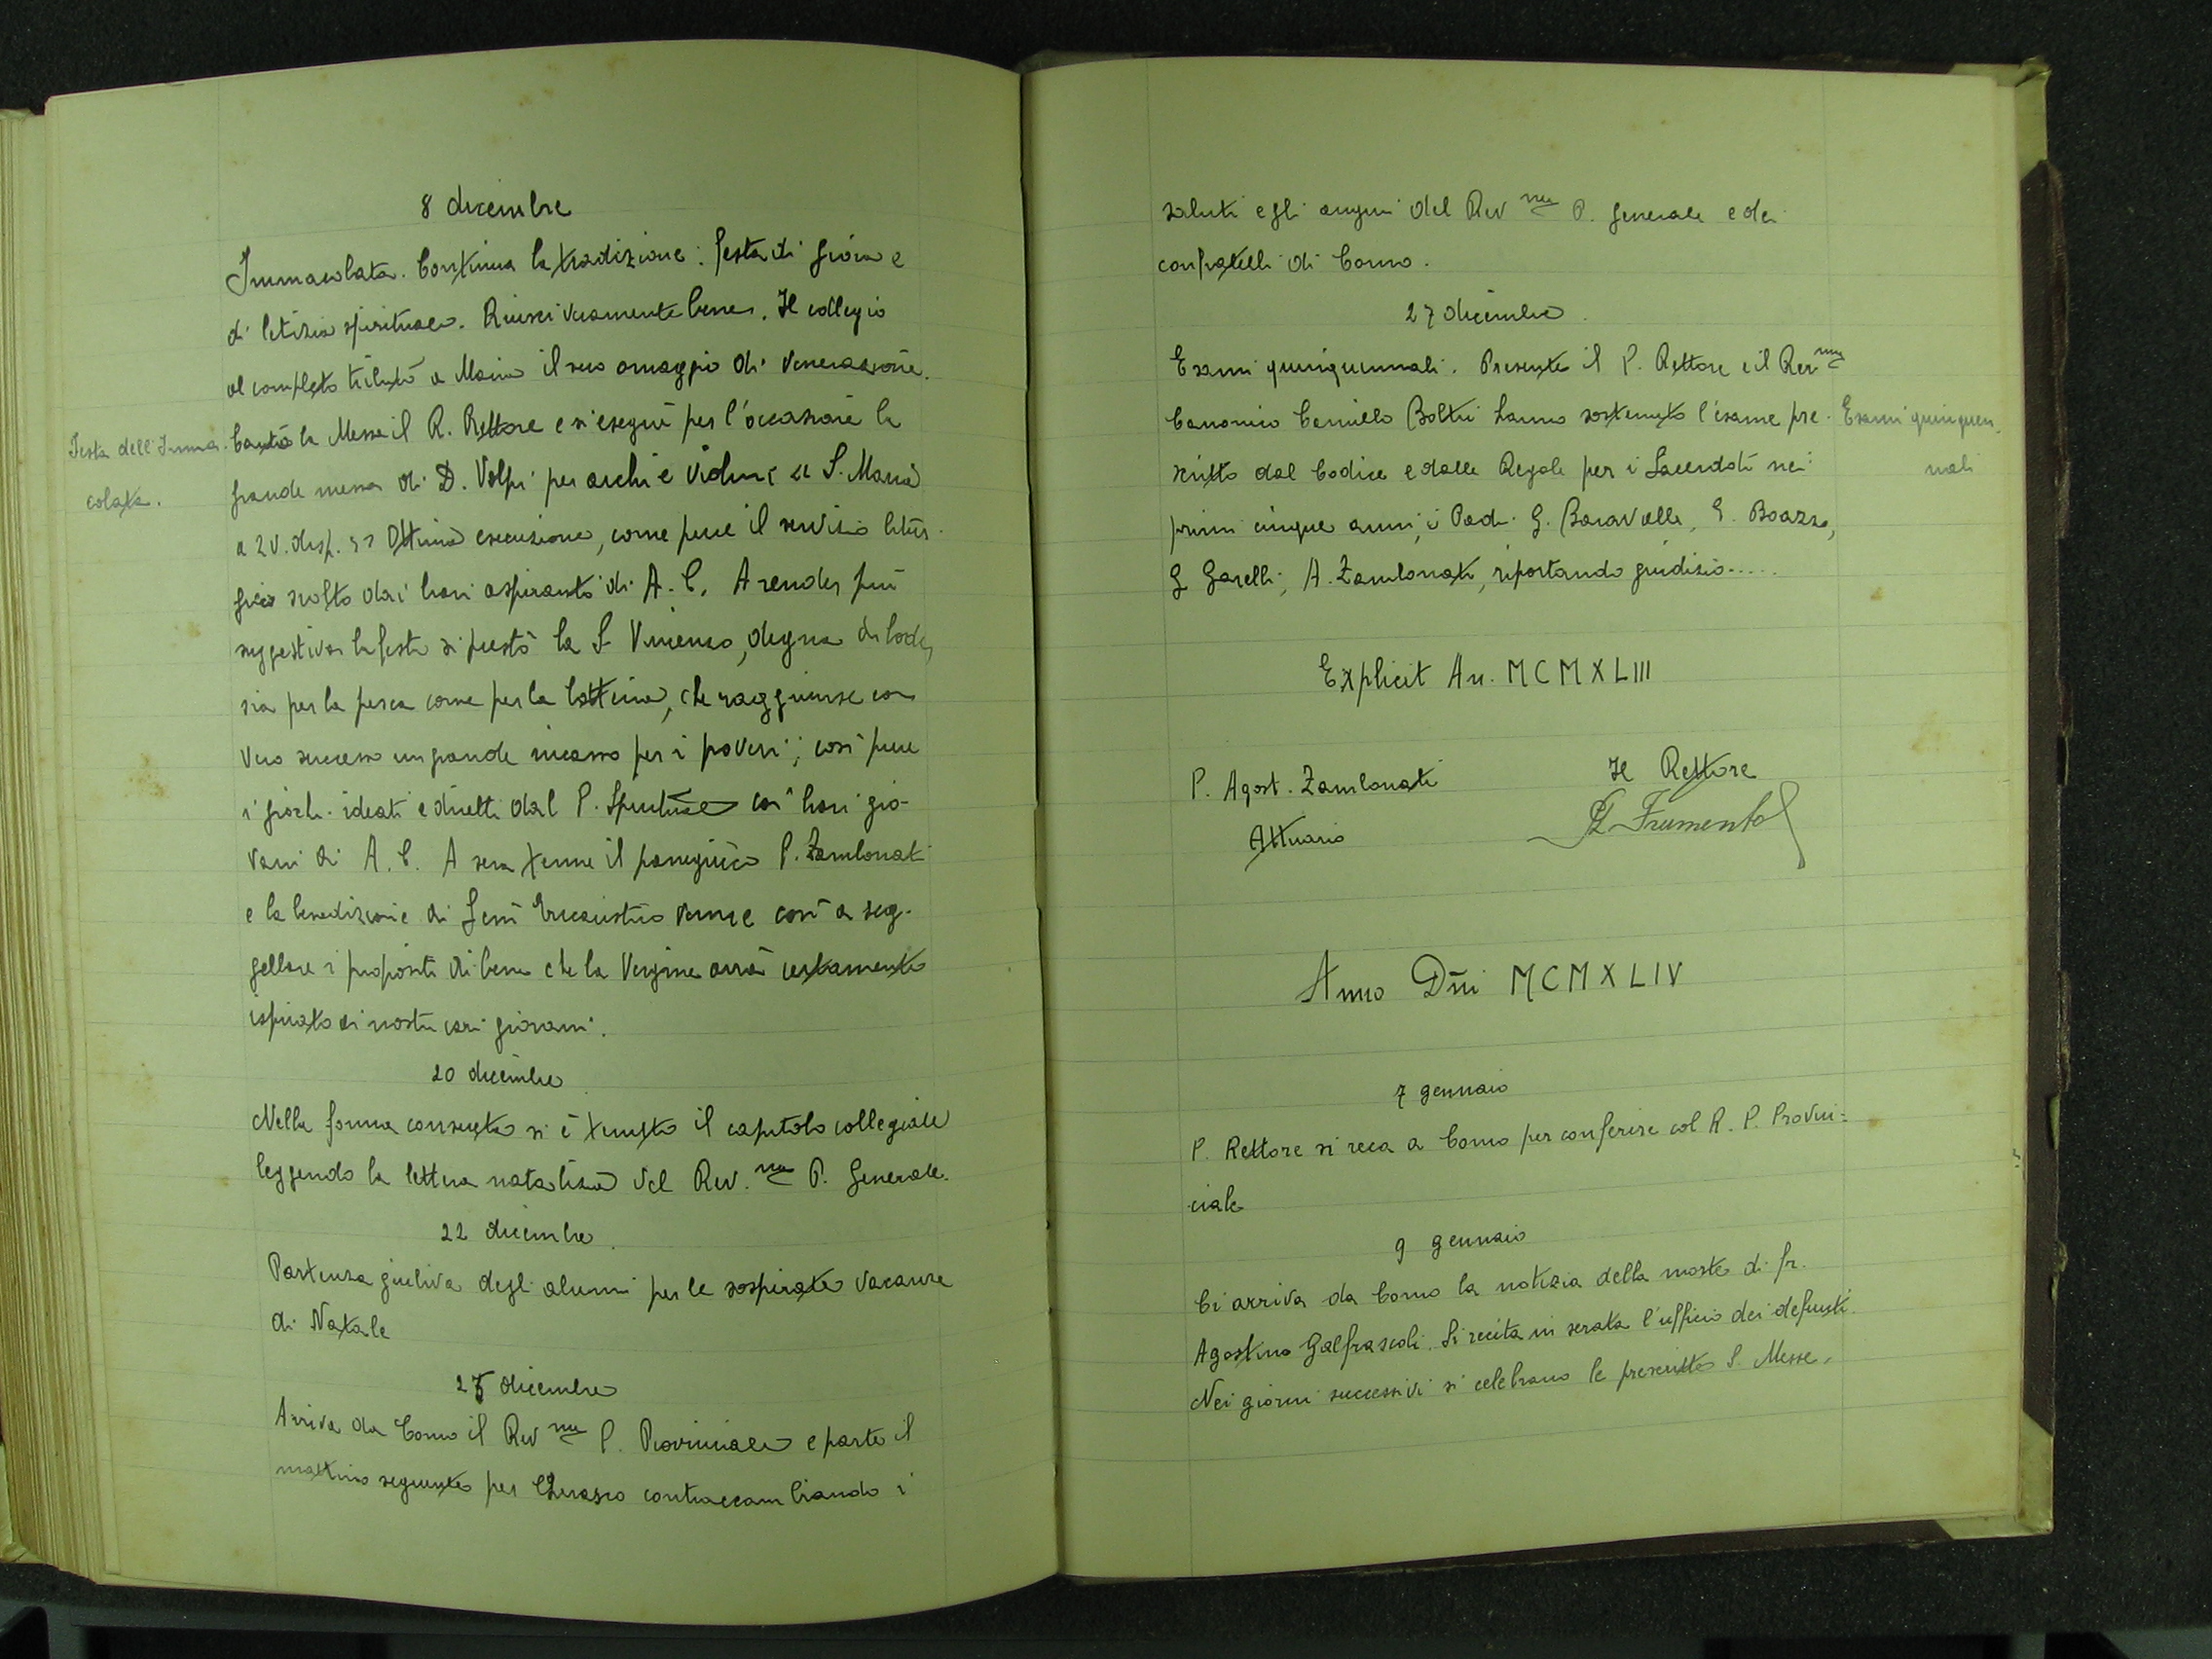 8 dicembre
Immacolata. Continua la tradizione: festa di gioia e
di letizia spirituale. Riuscì veramente bene. Il collegio
al completo tributò a Maria il suo omaggio di venerazione.
Festa dell'Imma-
colata.
Cantò la Messa il R. Rettore e si eseguì per l'occasione la
grande messa di D. Volpi per archi e violini « S. Maria
a 2 v. disp. » Ottima esecuzione, come pure il servizio litur-
gico svolto dai bravi aspiranti di A. C. A render più
suggestiva la festa si prestò la S. Vincenzo, degna di lode,
sia per la pesca come per la lotteria, che raggiunse con
vero successo un grande incasso per i poveri; così pure
i giochi ideati e diretti dal P. coi bravi gio-
vani di A. C. A sera tenne il panegirico P. Zambonati
e la benedizione di Gesù Eucaristico venne così a sug-
gellare i propositi di bene che la Vergine avrà certamente
ispirato ai nostri cari giovani.
20 dicembre
Nella forma consueta si è tenuto il capitolo collegiale
leggendo la lettera natalizia del Rev.mo P. Generale.
22 dicembre.
Partenza giuliva degli alunni per le sospirate vacanze
di Natale
25 dicembre
Arriva da Como il Rev mo P. Provinciale e parte il
mattino seguente per Cherasco contraccambiando i
saluti e gli auguri del Rev mo P. Generale e dei
confratelli di Como.
27 dicembre.
Esami quinquennali. Presente il P. Rettore e il Rev mo
Canonico Camillo Boltri hanno sostenuto l'esame pre-
Esami quinquen-
nali
scritto dal Codice e dalle Regole per i Sacerdoti nei
primi cinque anni, i Padri G. Baravalle, G. Boazzo,
G Garelli, A. Zambonati, riportando giudizio.....
Explicit An. MCMXLIII
P. Agost. Zambonati
Attuario
Il Rettore
P L Frumento
Anno Dñi MCMXLIV
7 gennaio
P. Rettore si reca a Como per conferire col R. P. Provin=
ciale
9 gennaio
Ci arriva da Como la notizia della morte di fr.
Agostino Galfrascoli. Si recita in serata l'ufficio dei defunti.
Nei giorni successivi si celebrano le prescritte S. Messe.